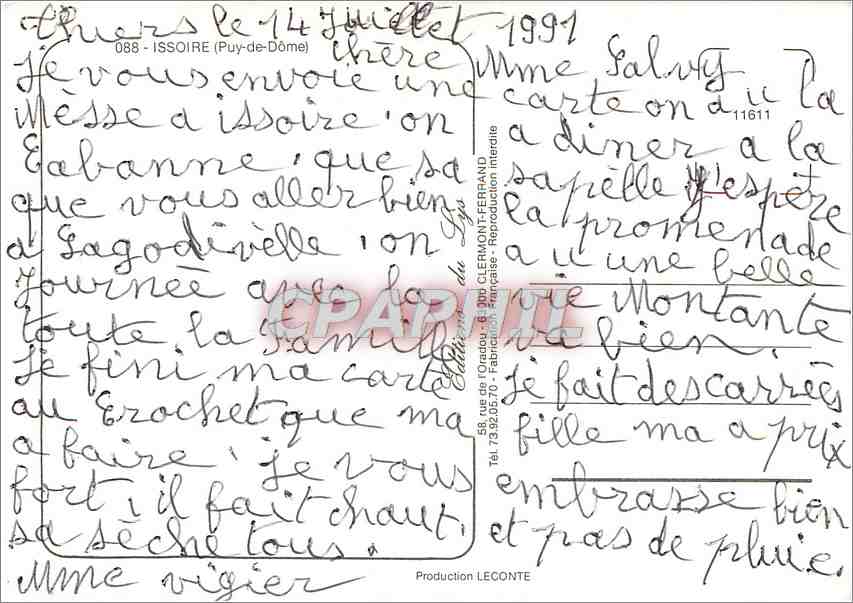 Thiers le 14 Juillet 1991
088 - ISSOIRE (Puy-de-Dôme)
chère Mme Salvy
Je vous envoie une carte on a u la
Mèsse a issoire . on a diner a la
Cabanne . que sa sapèlle J'espère
que vous aller bien la promenade
a Lagodivèlle . on a u une belle
Journeè avec la vie Montante
toute la Famille va bien.
Je fini ma carte Je fait des carrées
au Crochet que ma fille ma a prix
a faire . Je vous embrasse bien
fort , il fait chaut . et pas de pluie.
sa sèche tous .
Mme vigier
11611
Editions du Lys
58, rue de l'Oradou - 63000 CLERMONT-FERRAND
Tél. 73.92.05.70 - Fabrication Française - Reproduction interdite
CPAPHIL
Production LECONTE